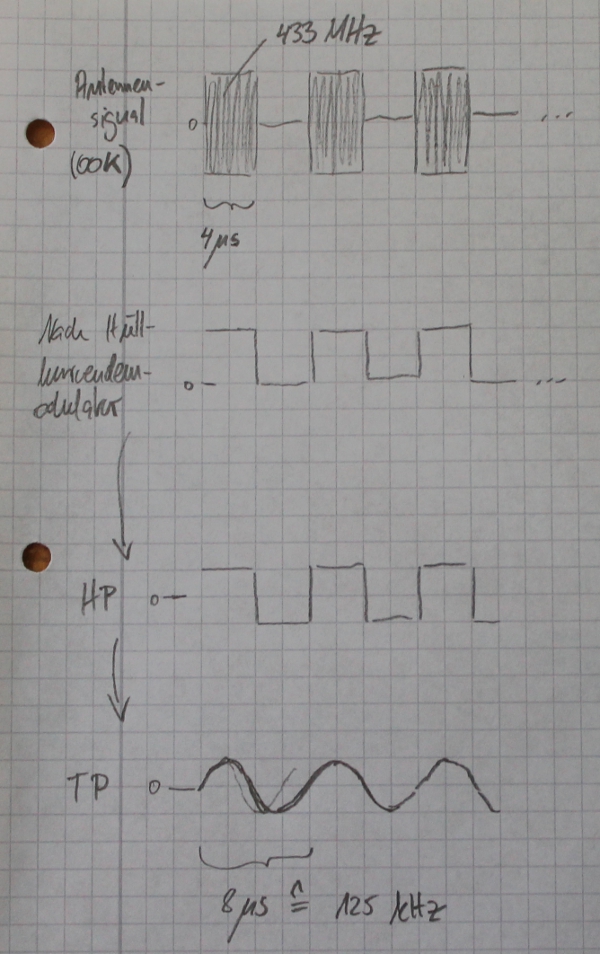 433 MHz
Antennen-
signal
(OOK)
0
...
4µs
Nach Hüll-
kurvendem-
odulator
0
...
HP 0
TP 0
8µs ≙ 125 kHz